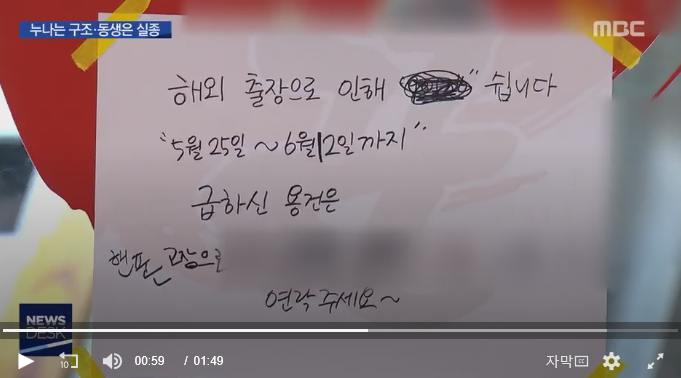 누나는 구조·동생은 실종
MBC
해외 출장으로 인해 쉽니다
"5월 25일 ~ 6월 12일까지"
급하신 용건은
핸폰 고장으로
연락주세요~
NEWS
DESK
10
00:59 / 01:49
자막